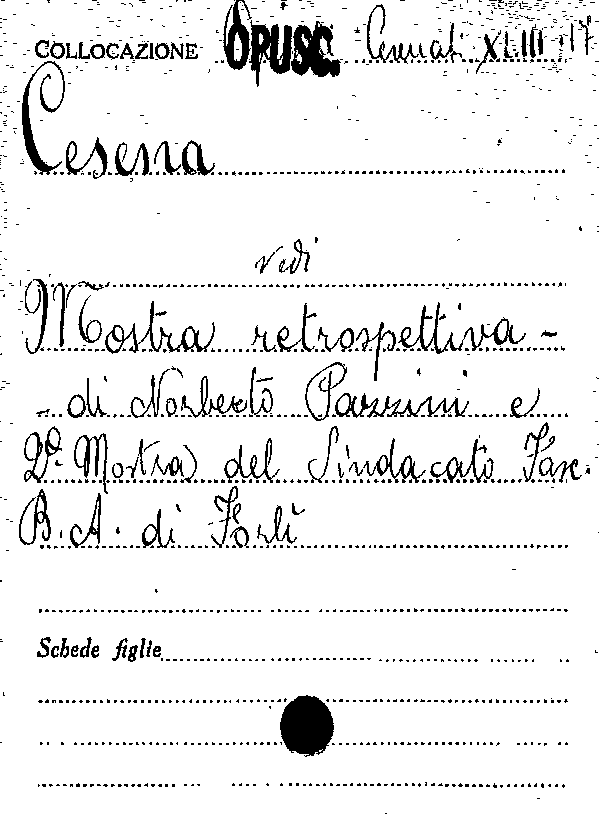 COLLOCAZIONE OPUSC. Cennati XLIII 17
Cesena
vedi
Mostra retrospettiva -
- di Norberto Pazzini e
2ª. Mostra del Sindacato Fasc.
B. A. di Forlì
Schede figlie